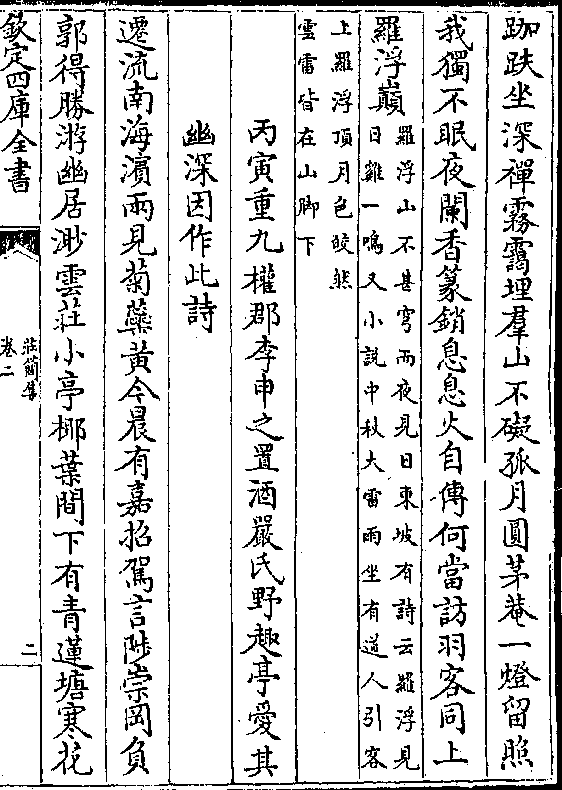 跏趺坐深禪霧靄埋羣山不礙孤月圓茅菴一燈留照
我獨不眠夜闌香篆銷息息火自傳何當訪羽客同上
羅浮巔
羅浮山不甚穹而夜見日東坡有詩云羅浮見
日雞一鳴又小説中秋大雷雨坐有道人引客
上羅浮頂月色皎然
雲雷皆在山脚下
丙寅重九權郡李申之置酒嚴氏野趣亭愛其
幽深因作此詩
遷流南海濵兩見菊蘂黃今晨有嘉招駕言陟崇岡負
郭得勝游幽居渺雲莊小亭椰葉間下有青蓮塘寒花
欽定四庫全書
莊簡集
卷二
二